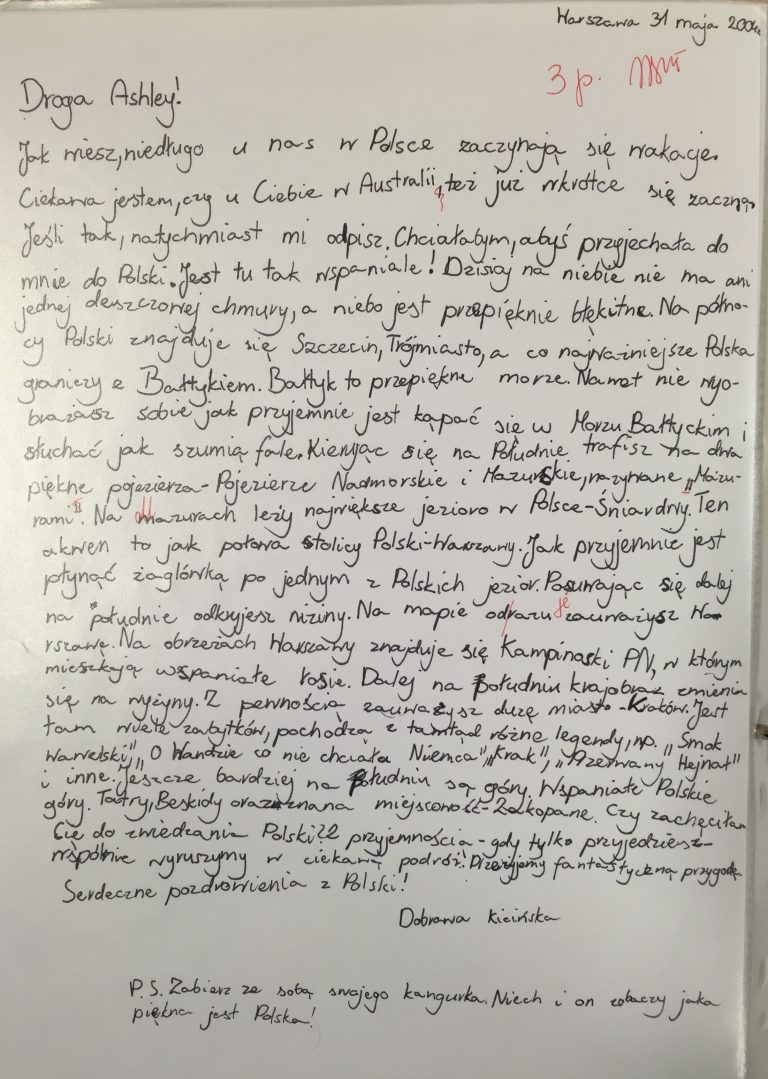 Warszawa 31 maja 2004r.
3 p.
Droga Ashley!
Jak wiesz, niedługo u nas w Polsce zaczynają się wakacje.
Ciekawa jestem, czy u Ciebie w Australii, też już wkrótce się zaczną.
Jeśli tak, natychmiast mi odpisz. Chciałabym, abyś przyjechała do
mnie do Polski. Jest tu tak wspaniale! Dzisiaj na niebie nie ma ani
jednej deszczowej chmury, a niebo jest przepięknie błękitne. Na półno-
cy Polski znajduje się Szczecin, Trójmiasto, a co najważniejsze Polska
graniczy z Bałtykiem. Bałtyk to przepiękne morze. Nawet nie wyo-
brażasz sobie jak przyjemnie jest kąpać się w Morzu Bałtyckim i
słuchać jak szumią fale. Kierując się na Południe trafisz na dwa
piękne pojezierza - Pojezierze Nadmorskie i Mazurskie, nazywane „Mazu-
rami". Na Mazurach leży największe jezioro w Polsce - Śniardwy. Ten
akwen to jak połowa stolicy Polski - Warszawy. Jak przyjemnie jest
płynąć żaglówką po jednym z Polskich jezior. Posuwając się dalej
na południe odkryjesz niziny. Na mapie od razu zauważysz Wa-
rszawę. Na obrzeżach Warszawy znajduje się Kampinoski PN, w którym
mieszkają wspaniałe łosie. Dalej na Południu krajobraz zmienia
się na wyżyny. Z pewnością zauważysz duże miasto - Kraków. Jest
tam wiele zabytków, pochodzą z tamtąd różne legendy, np. „Smok
Wawelski", „O Wandzie co nie chciała Niemca", „Krak", „Przerwany Hejnał"
i inne. Jeszcze bardziej na Południu są góry. Wspaniałe Polskie
góry. Tatry, Beskidy oraz znana miejscowość - Zakopane. Czy zachęciłam
Cię do zwiedzania Polski? Z przyjemnością - gdy tylko przyjedziesz -
wspólnie wyruszymy w ciekawą podróż! Przeżyjemy fantastyczną przygodę.
Serdeczne pozdrowienia z Polski!
Dobrawa Kicińska
P.S. Zabierz ze sobą swojego kangurka. Niech i on zobaczy jaka
piękna jest Polska!